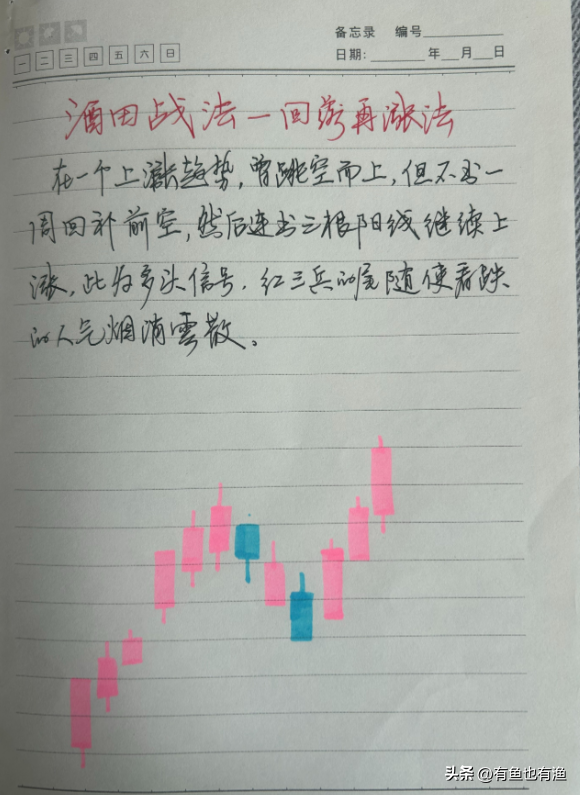 备忘录 编号
一 二 三 四 五 六 日
日期: 年 月 日
酒田战法一回落再涨法
在一个上涨趋势,曾跳空而上,但不出一
周回补前空,然后连出三根阳线继续上
涨,此为多头信号.红三兵的尾随使看跌
的人气烟消雲散。
头条 @有鱼也有渔